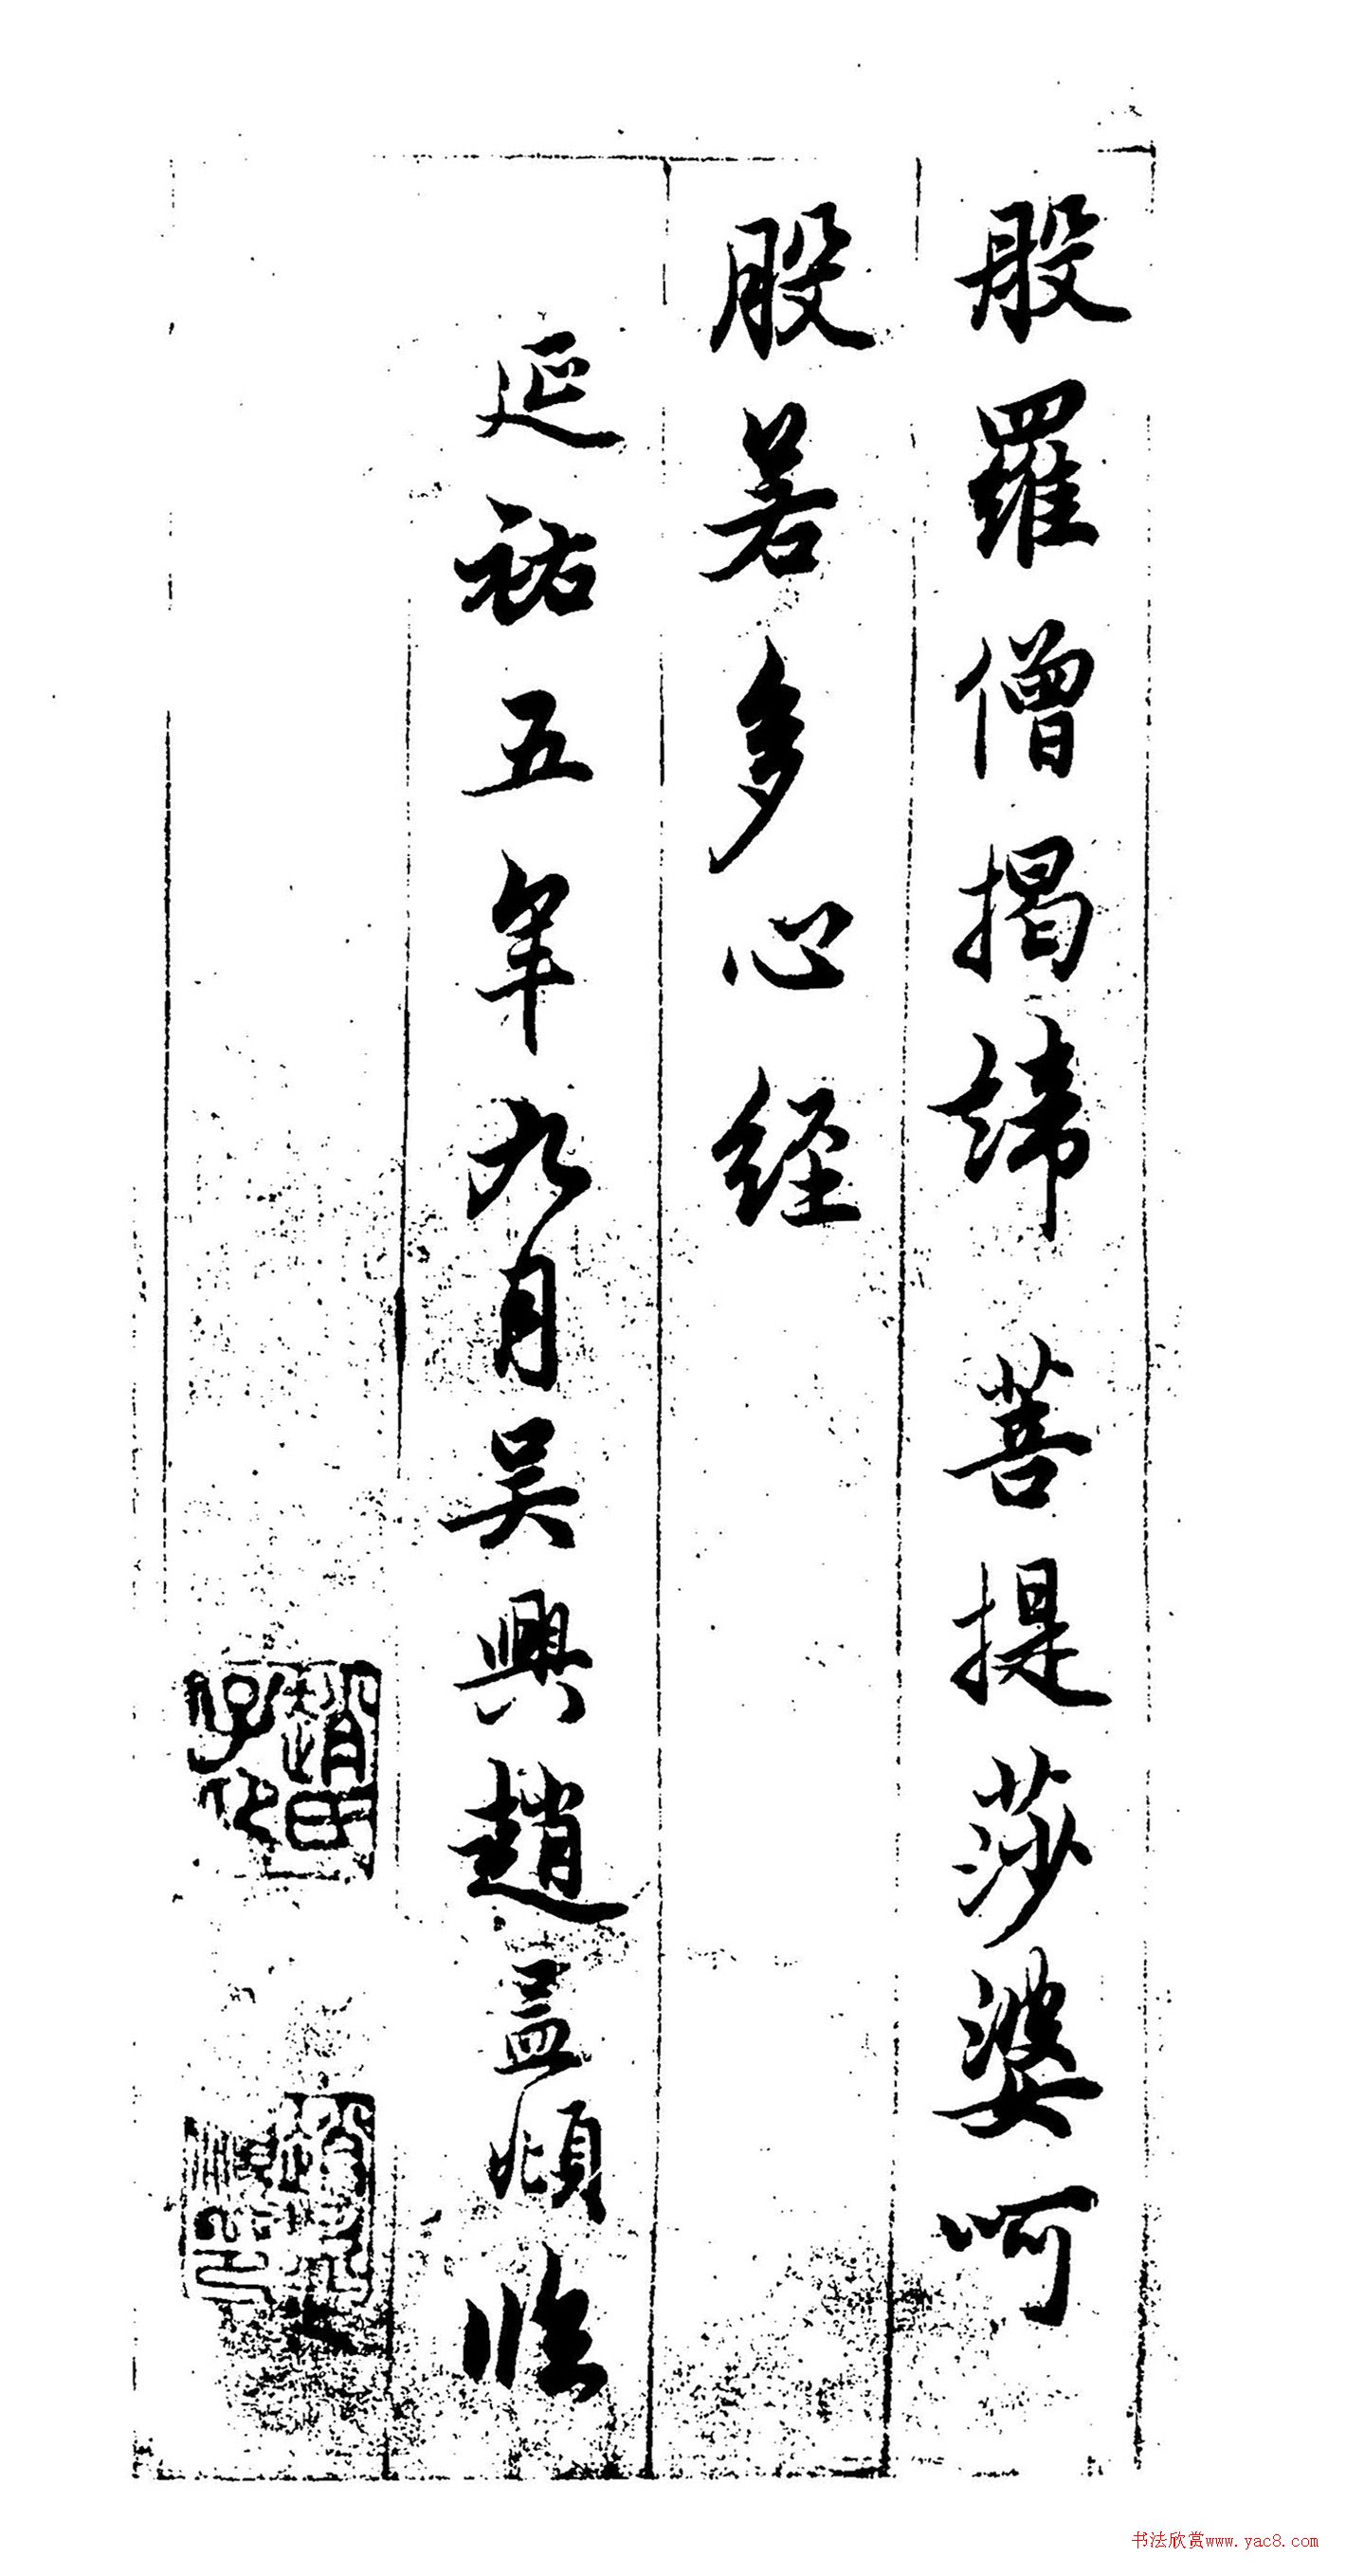 般羅僧揭諦菩提莎婆呵
般若多心經
延祐五年九月吳興趙孟頫臨
趙氏子昂
趙孟頫印
书法欣赏www.yac8.com